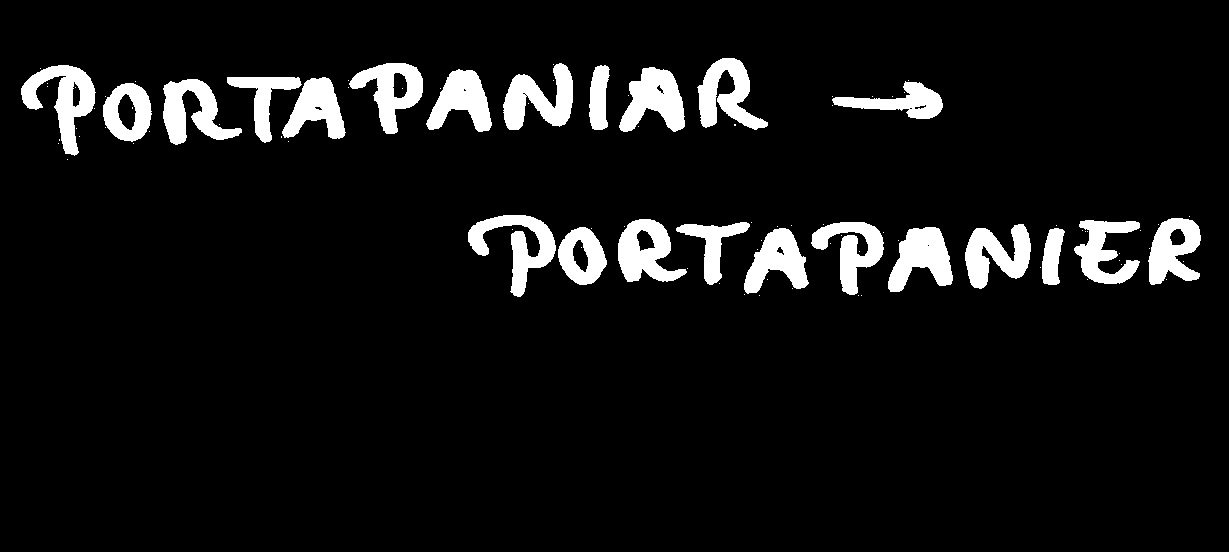 PORTAPANIAR →
PORTAPANIER